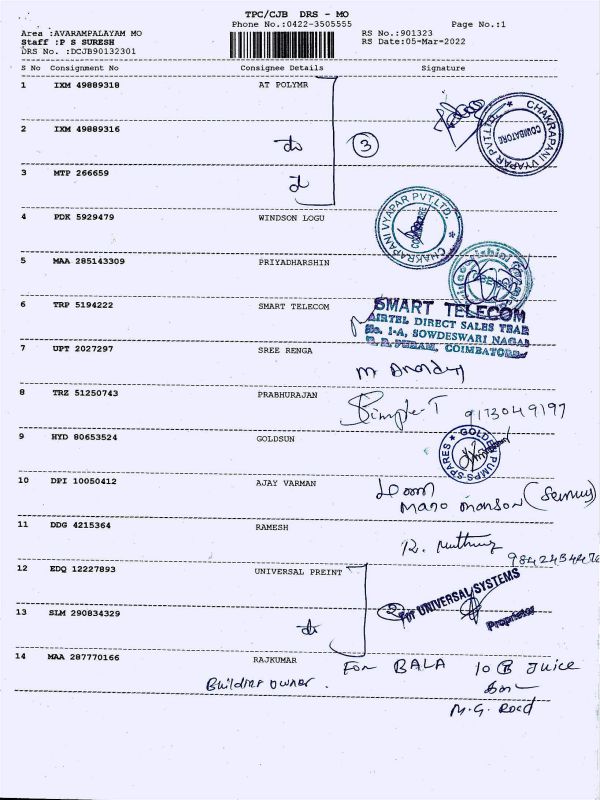 TPC/CJB DRS - MO
Phone No.:0422-3505555
Page No.:1
Area :AVARAMPALAYAM MO
RS No.:901323
Staff :P S SURESH
RS Date:05-Mar-2022
DRS No. :DCJB90132301
S No Consignment No Consignee Details Signature
1 IXM 49889318 AT POLYMR
2 IXM 49889316
3
3 MTP 266659
CHAKRAPANI VYAPAR PVT.LTD.
COIMBATORE
4 PDK 5929479 WINDSON LOGU
CHAKRAPANI VYAPAR PVT.LTD.
COIMBATORE
5 MAA 285143309 PRIYADHARSHIN
6 TRP 5194222 SMART TELECOM
SMART TELECOM
AIRTEL DIRECT SALES TEAM
No. 1-A, SOWDESWARI NAGAR
COIMBATORE
7 UPT 2027297 SREE RENGA
8 TRZ 51250743 PRABHURAJAN
9 HYD 80653524 GOLDSUN
GOLDEN PUMPS SPARES
10 DPI 10050412 AJAY VARMAN
11 DDG 4215364 RAMESH
12 EDQ 12227893 UNIVERSAL PREINT
2
For UNIVERSAL SYSTEMS
Proprietor
13 SLM 290834329
14 MAA 287770166 RAJKUMAR
For BALA
Juice
owner
M.G. Road